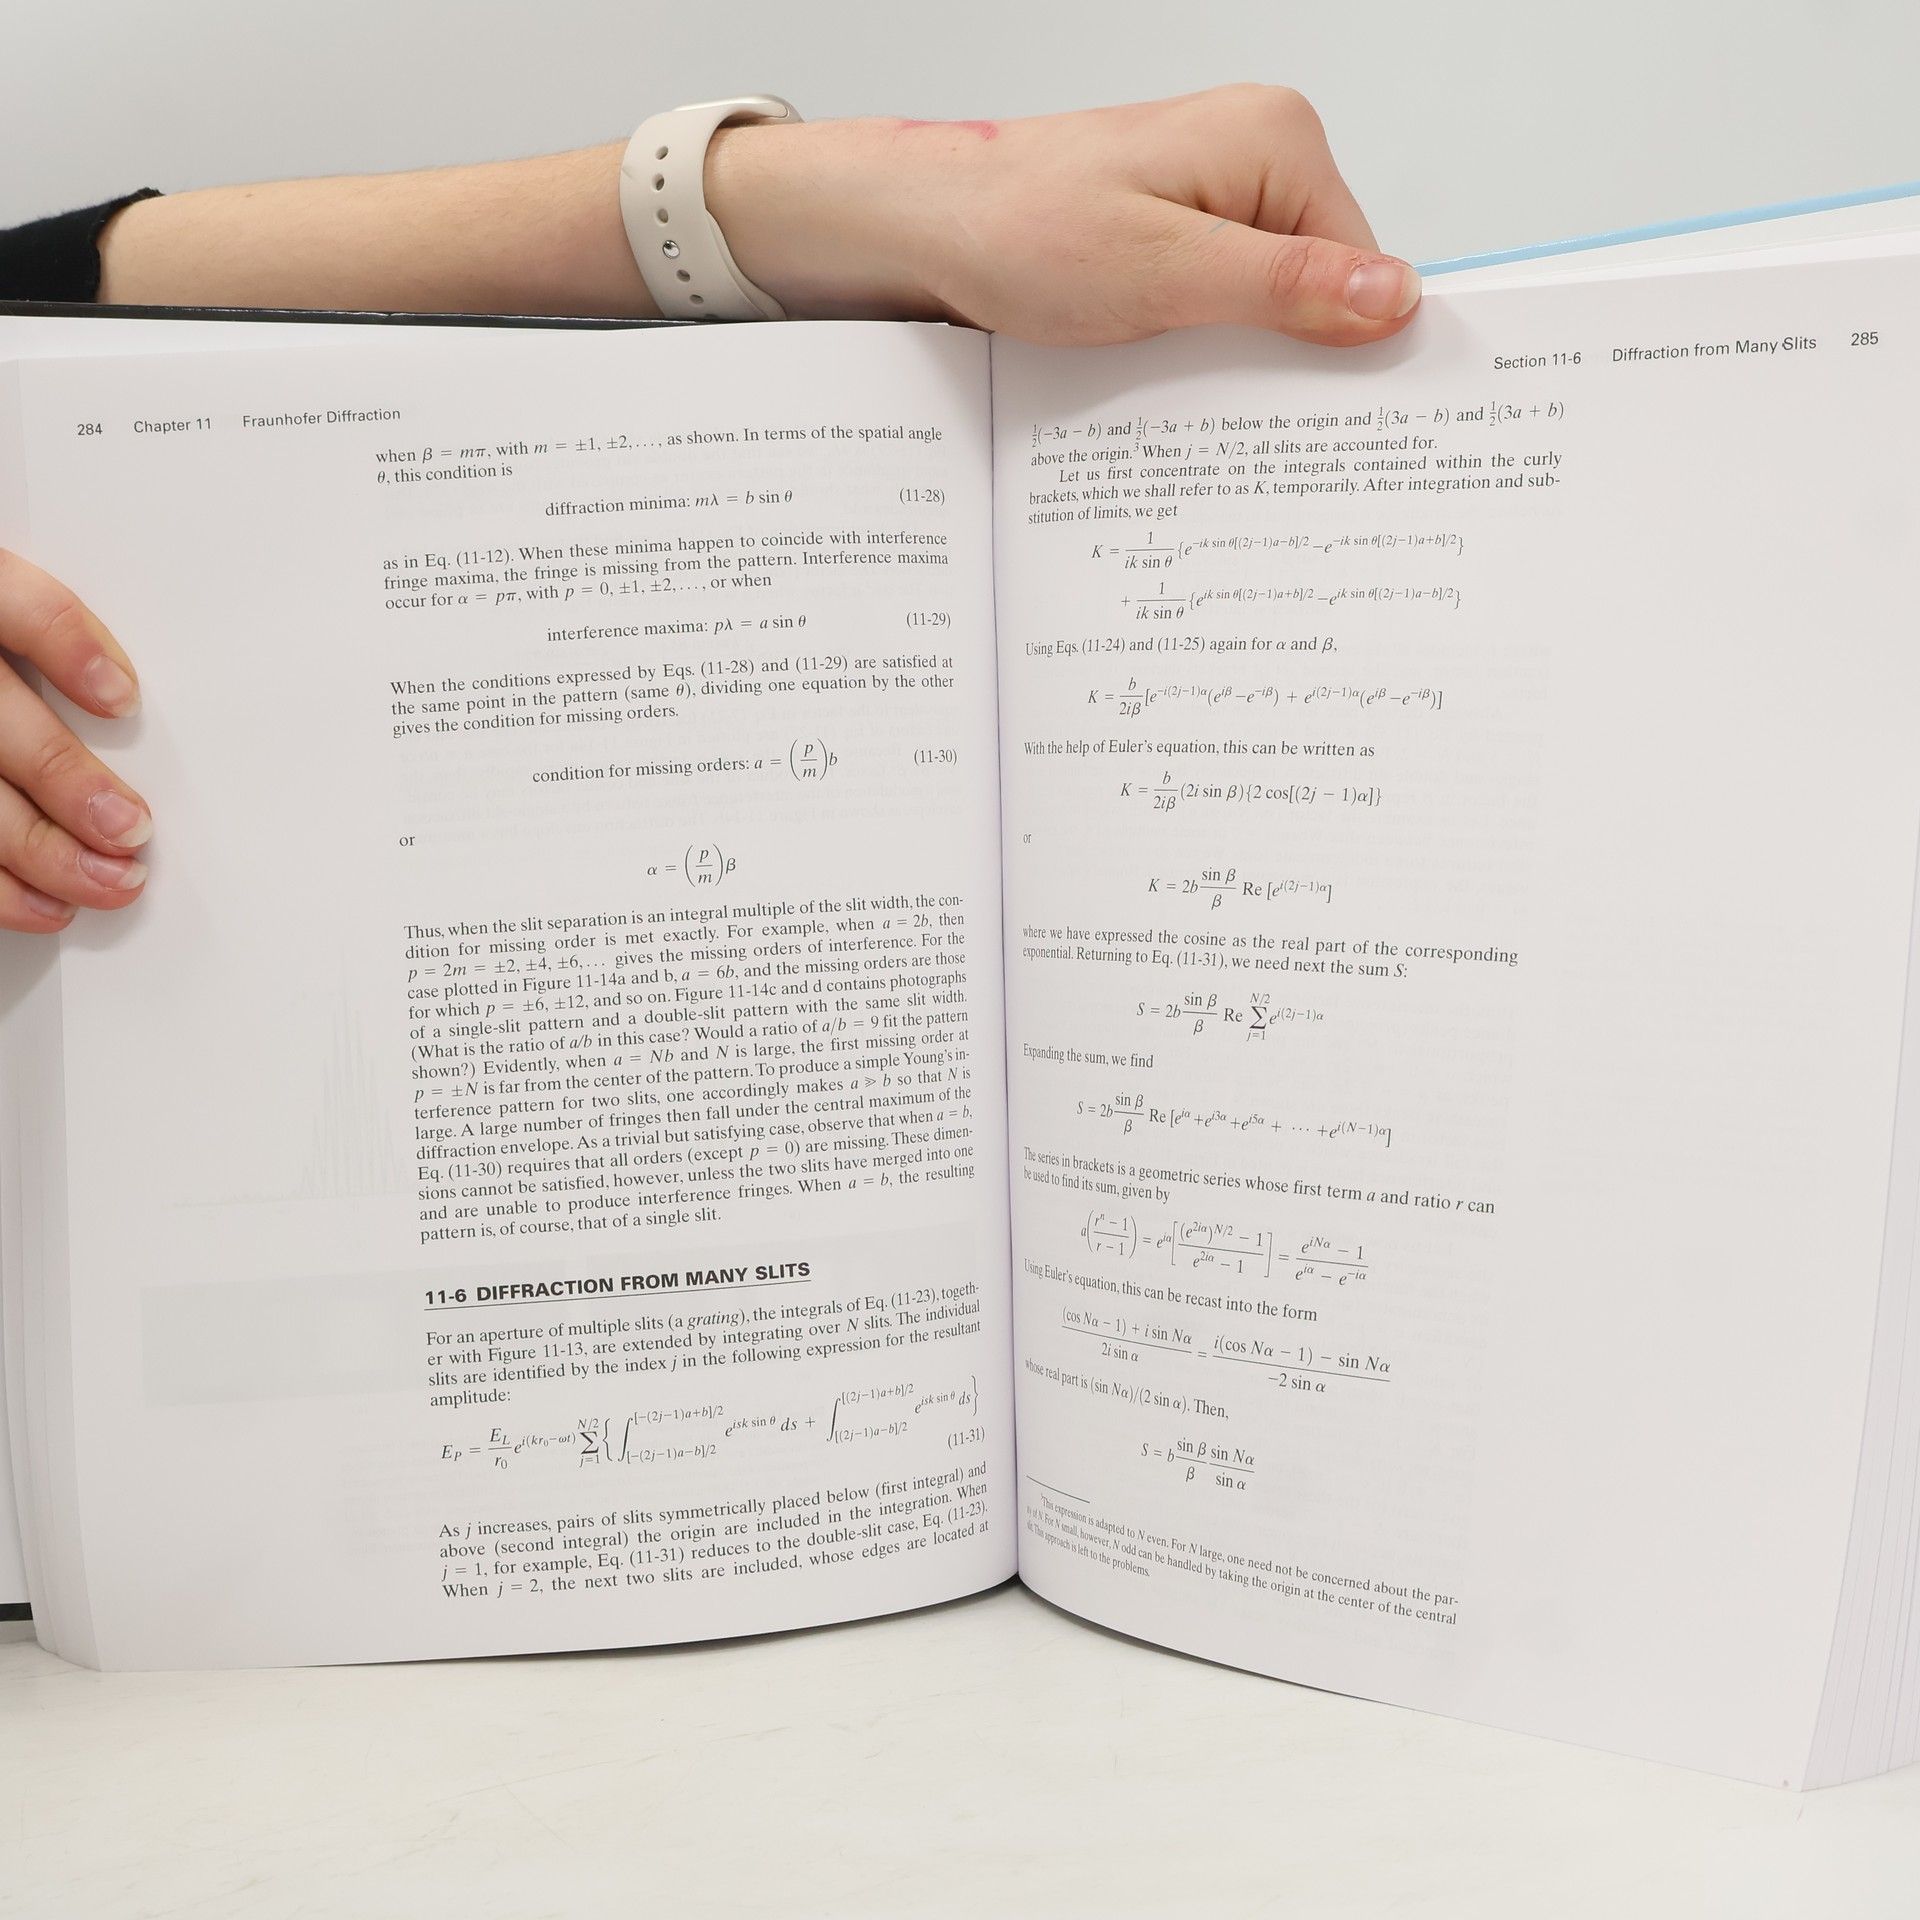 284 Chapter 11 Fraunhofer Diffraction
when β = mπ, with m = ±1, ±2,..., as shown. In terms of the spatial angle
θ, this condition is
diffraction minima: mλ = b sin θ (11-28)
as in Eq. (11-12). When these minima happen to coincide with interference
fringe maxima, the fringe is missing from the pattern. Interference maxima
occur for α = pπ, with p = 0, ±1, ±2,..., or when
interference maxima: pλ = a sin θ (11-29)
When the conditions expressed by Eqs. (11-28) and (11-29) are satisfied at
the same point in the pattern (same θ), dividing one equation by the other
gives the condition for missing orders.
condition for missing orders: a = (p/m)b (11-30)
or
α = (p/m)β
Thus, when the slit separation is an integral multiple of the slit width, the con-
dition for missing order is met exactly. For example, when a = 2b, then
p = 2m = ±2, ±4, ±6,... gives the missing orders of interference. For the
case plotted in Figure 11-14a and b, a = 6b, and the missing orders are those
for which p = ±6, ±12, and so on. Figure 11-14c and d contains photographs
of a single-slit pattern and a double-slit pattern with the same slit width.
(What is the ratio of a/b in this case? Would a ratio of a/b = 9 fit the pattern
shown?) Evidently, when a = Nb and N is large, the first missing order at
p = ±N is far from the center of the pattern. To produce a simple Young's in-
terference pattern for two slits, one accordingly makes a ≫ b so that N is
large. A large number of fringes then fall under the central maximum of the
diffraction envelope. As a trivial but satisfying case, observe that when a = b,
Eq. (11-30) requires that all orders (except p = 0) are missing. These dimen-
sions cannot be satisfied, however, unless the two slits have merged into one
and are unable to produce interference fringes. When a = b, the resulting
pattern is, of course, that of a single slit.
11-6 DIFFRACTION FROM MANY SLITS
For an aperture of multiple slits (a grating), the integrals of Eq. (11-23), togeth-
er with Figure 11-13, are extended by integrating over N slits. The individual
slits are identified by the index j in the following expression for the resultant
amplitude:
E_P = (E_L/r_0) e^{i(kr_0−ωt)} ∑_{j=1}^{N/2} { ∫_{[−(2j−1)a−b]/2}^{[−(2j−1)a+b]/2} e^{isk sin θ} ds + ∫_{[(2j−1)a−b]/2}^{[(2j−1)a+b]/2} e^{isk sin θ} ds }
(11-31)
As j increases, pairs of slits symmetrically placed below (first integral) and
above (second integral) the origin are included in the integration. When
j = 1, for example, Eq. (11-31) reduces to the double-slit case, Eq. (11-23).
When j = 2, the next two slits are included, whose edges are located at
Section 11-6 Diffraction from Many Slits 285
½(−3a − b) and ½(−3a + b) below the origin and ½(3a − b) and ½(3a + b)
above the origin.³ When j = N/2, all slits are accounted for.
Let us first concentrate on the integrals contained within the curly
brackets, which we shall refer to as K, temporarily. After integration and sub-
stitution of limits, we get
K = 1/(ik sin θ) {e^{−ik sin θ[(2j−1)a−b]/2} − e^{−ik sin θ[(2j−1)a+b]/2}}
+ 1/(ik sin θ) {e^{ik sin θ[(2j−1)a+b]/2} − e^{ik sin θ[(2j−1)a−b]/2}}
Using Eqs. (11-24) and (11-25) again for α and β,
K = b/(2iβ) [e^{−i(2j−1)α}(e^{iβ} − e^{−iβ}) + e^{i(2j−1)α}(e^{iβ} − e^{−iβ})]
With the help of Euler's equation, this can be written as
K = b/(2iβ) (2i sin β){2 cos[(2j − 1)α]}
or
K = 2b (sin β/β) Re [e^{i(2j−1)α}]
where we have expressed the cosine as the real part of the corresponding
exponential. Returning to Eq. (11-31), we need next the sum S:
S = 2b (sin β/β) Re ∑_{j=1}^{N/2} e^{i(2j−1)α}
Expanding the sum, we find
S = 2b (sin β/β) Re [e^{iα} + e^{i3α} + e^{i5α} + ··· + e^{i(N−1)α}]
The series in brackets is a geometric series whose first term a and ratio r can
be used to find its sum, given by
a((r^n − 1)/(r − 1)) = e^{iα}[((e^{2iα})^{N/2} − 1)/(e^{2iα} − 1)] = (e^{iNα} − 1)/(e^{iα} − e^{−iα})
Using Euler's equation, this can be recast into the form
((cos Nα − 1) + i sin Nα)/(2i sin α) = (i(cos Nα − 1) − sin Nα)/(−2 sin α)
whose real part is (sin Nα)/(2 sin α). Then,
S = b (sin β/β) (sin Nα/sin α)
³This expression is adapted to N even. For N large, one need not be concerned about the par-
ity of N. For N small, however, N odd can be handled by taking the origin at the center of the central
slit. This approach is left to the problems.